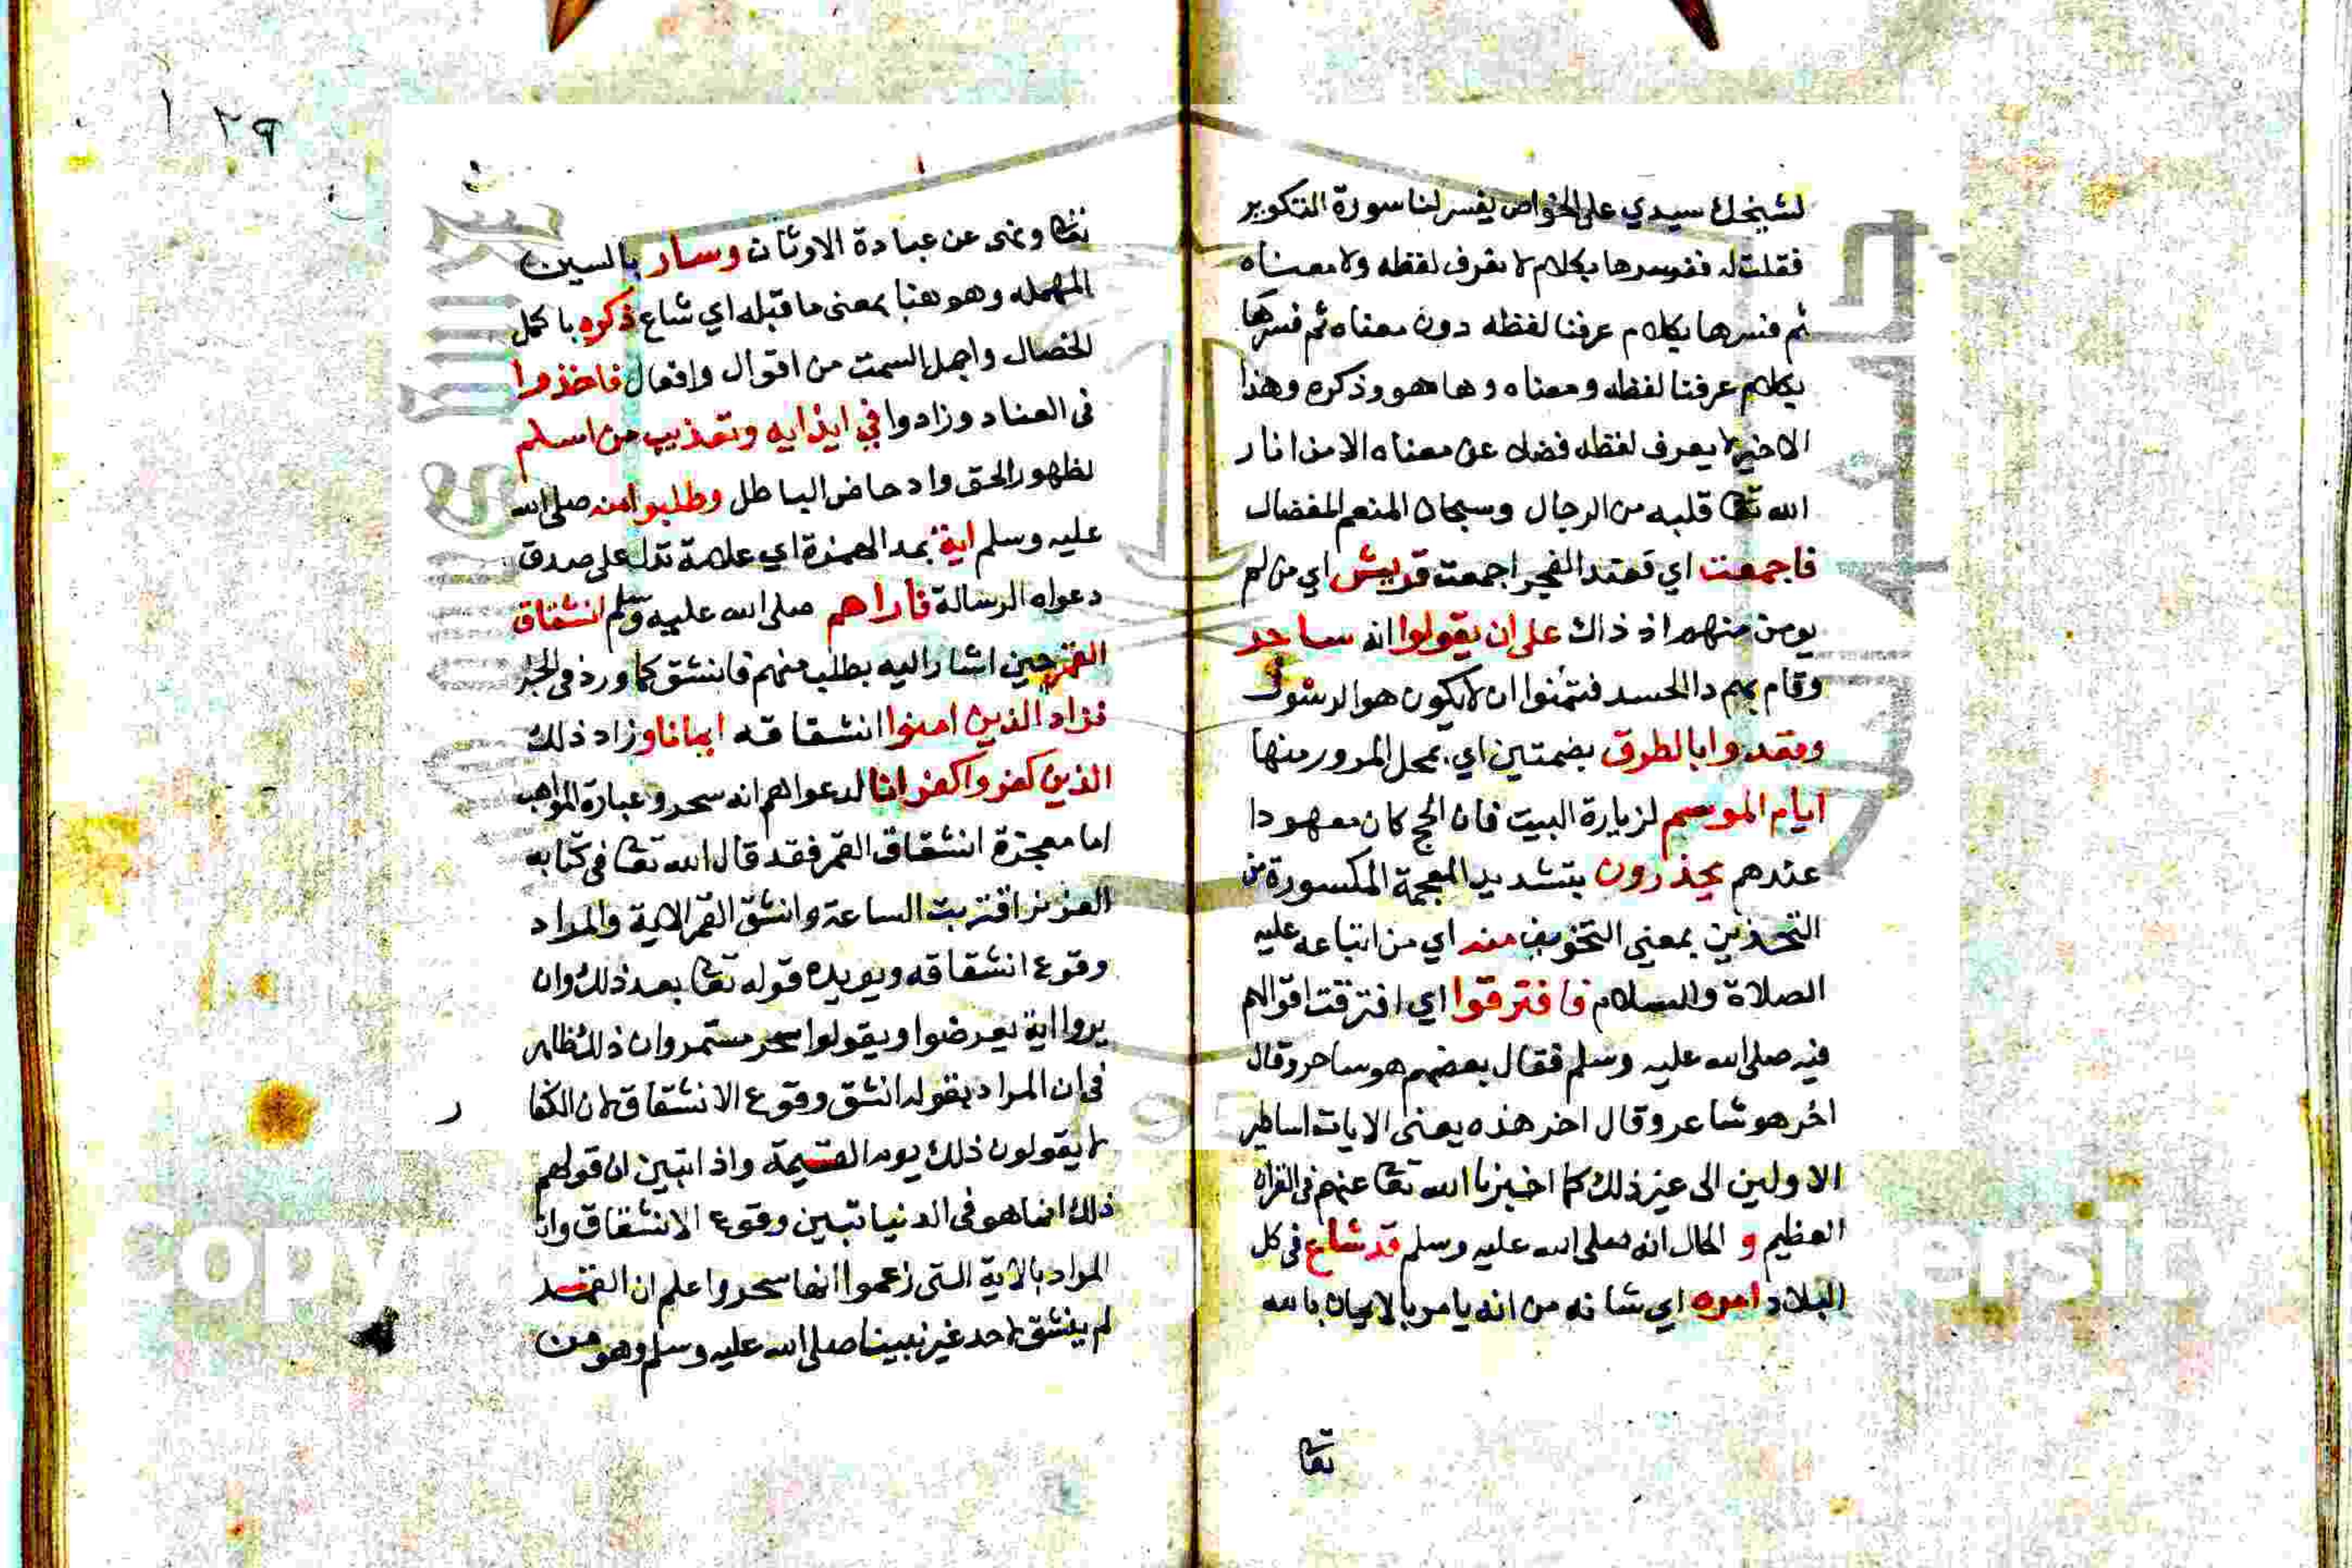 لشيخك سيدي على الخواص يفسر لنا سورة التكوير
فقلت له ففسرها بكلام لا نعرف لفظه ولا معناه
ثم فسرها بكلام عرفنا لفظه دون معناه ثم فسرها
بكلام عرفنا لفظه ومعناه وها هو وذكره وهذا
الاخير لا يعرف لفظه فضلا عن معناه الا من انار
الله تعا قلبه من الرجال وسبحان المنعم المفضال
فاجمعت اي فعند الفجر اجمعت قريش اي من لم
يومن منهم اذ ذاك على ان يقولوا انه ساحر
وقام بهم دا الحسد فتمنوا ان لا يكون هو الرسول
وقعدوا بالطرق بضمتين اي بمحل المرور منها
ايام الموسم لزيارة البيت فان الحج كان معهودا
عندهم يحذرون بتشديد المعجمة المكسورة من
التحذير بمعنى التخويف منه اي من اتباعه عليه
الصلاة والسلام فافترقوا اي افترقت اقوالهم
فيه صلى الله عليه وسلم فقال بعضهم هو ساحر وقال
اخر هو شاعر وقال اخر هذه يعنى الايات اساطير
الاولين الى غير ذلك كما اخبرنا الله تعا عنهم فى القران
العظيم و الحال انه صلى الله عليه وسلم قد شاع فى كل
البلاد امره اي شانه من انه يامر بالايمان بالله
تعا
١٢٩
تعا ونهى عن عبادة الاوثان وسار بالسين
المهمله وهو هنا بمعنى ما قبله اي شاع ذكره باكمل
الخصال واجمل السمت من اقوال وافعال فاخذوا
فى العناد وزادوا في ايذايه وتعذيب من اسلم
لظهور الحق وادحاض الباطل وطلبوا منه صلى الله
عليه وسلم اية بمد الهمزة اي علامة تدل على صدق
دعواه الرسالة فاراهم صلى الله عليه وسلم انشقاق
القمر حين اشار اليه بطلب منهم فانشق كما ورد فى الخبر
فزاد الذين امنوا انشقاقه ايمانا وزاد ذلك
الذين كفروا كفرانا لدعواهم انه سحر وعبارة المواهب
اما معجزة انشقاق القمر فقد قال الله تعا فى كتابه
العزيز اقتربت الساعة وانشق القمر الاية والمراد
وقوع انشقاقه ويويده قوله تعا بعد ذلك وان
يروا اية يعرضوا ويقولوا سحر مستمر وان ذلك ظاهر
فى ان المراد بقوله انشق وقوع الانشقاق لان الكفا
ر
لا يقولون ذلك يوم القيمة واذا تبين ان قولهم
ذلك انما هو فى الدنيا تبين وقوع الانشقاق وان
المراد بالاية التى زعموا انها سحر واعلم ان القمر
لم ينشق لاحد غير نبينا صلى الله عليه وسلم وهو من